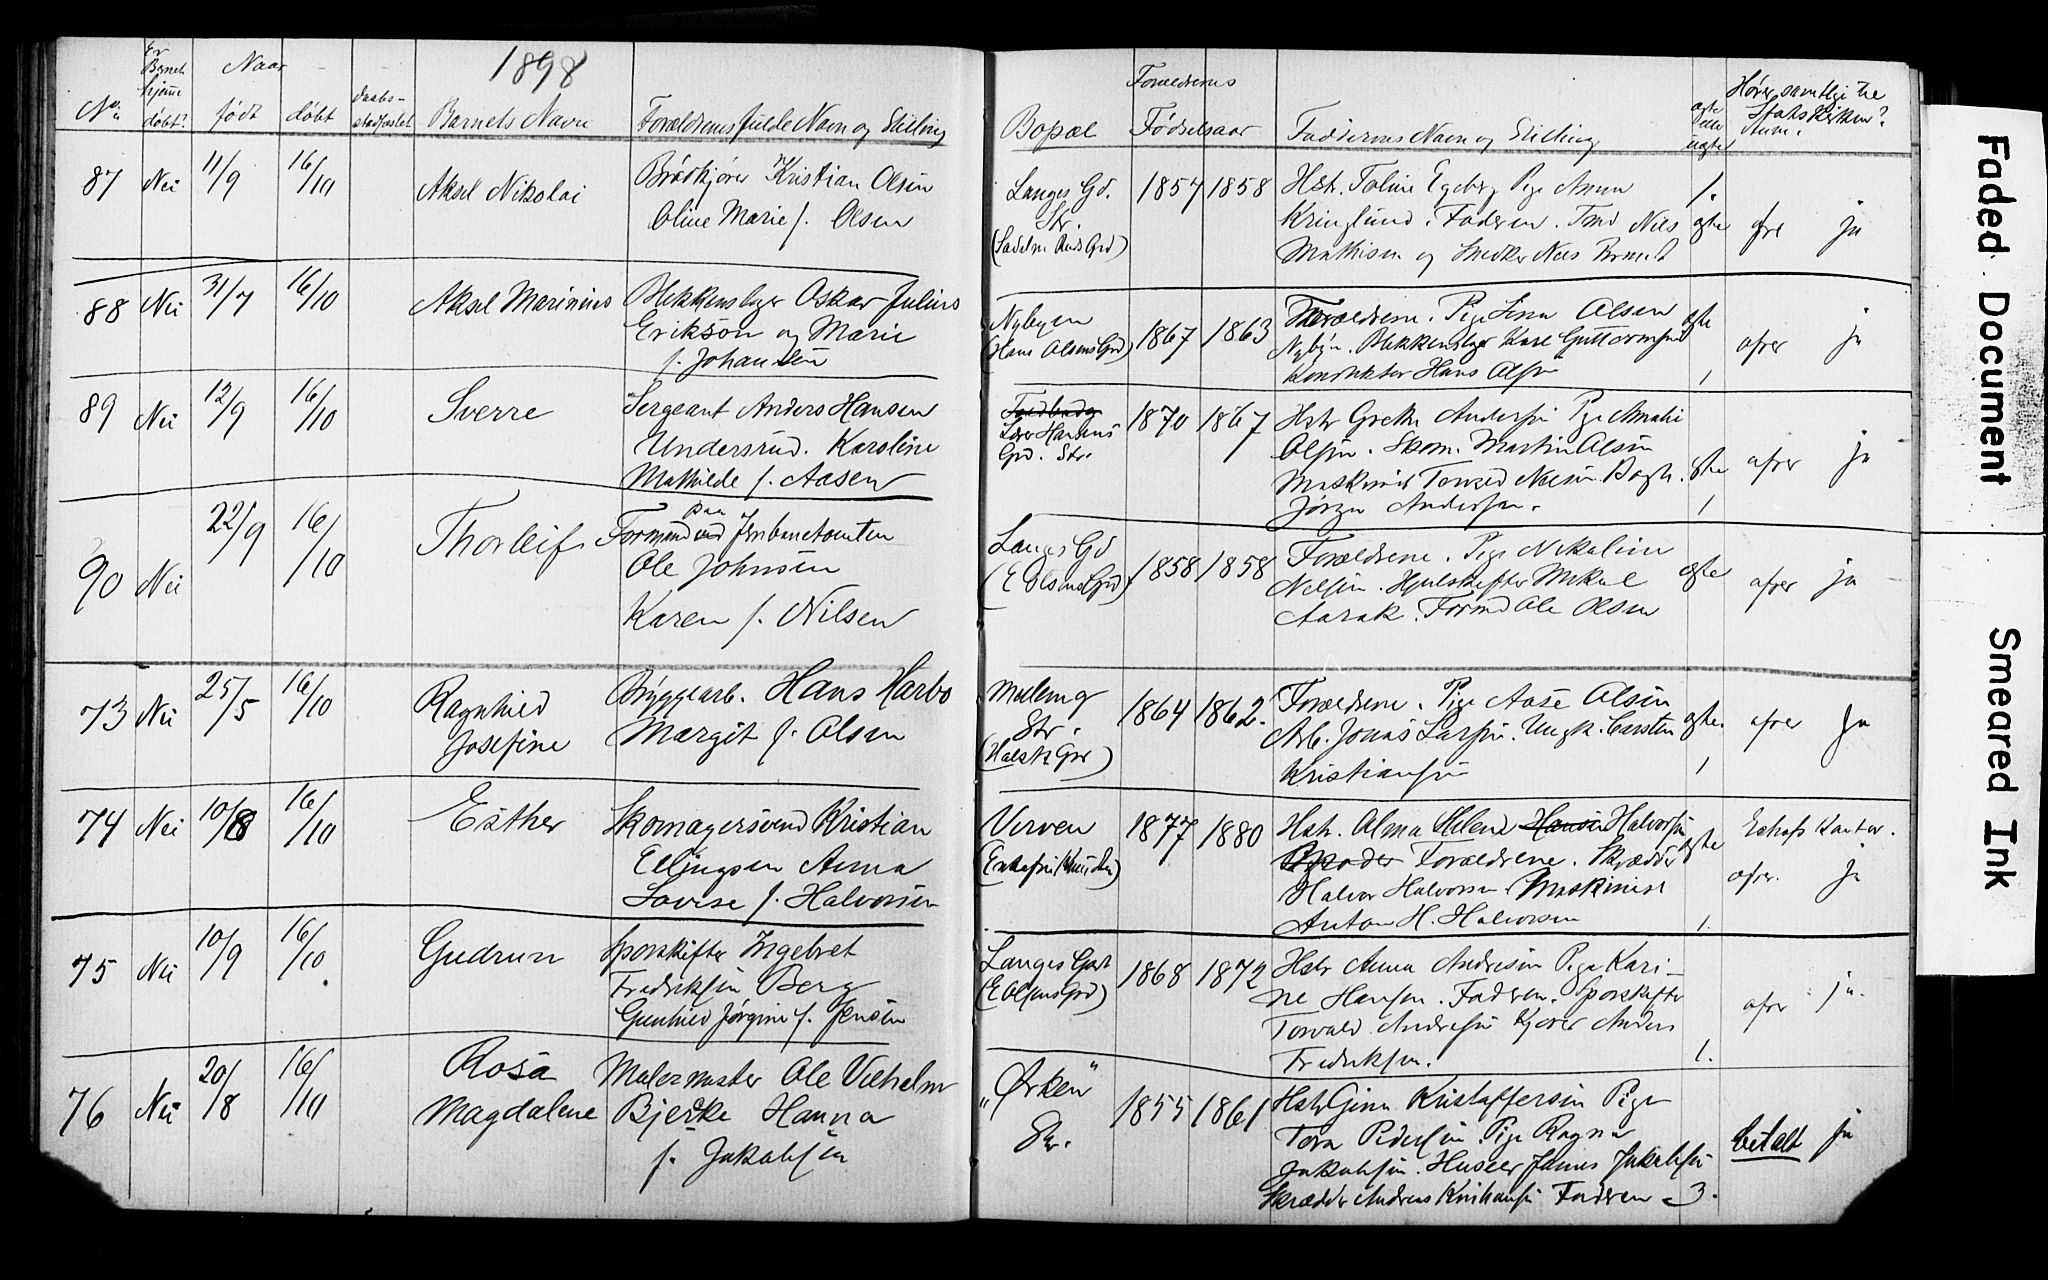 1898
No
Er Barnet hjemme døbt?
Naar
født
døbt
Daabs-
stadfæstet
Barnets Navn
Forældrenes fulde Navn og Stilling
Bopæl
Forældrenes
Fødselsaar
Faddernes Navn og Stilling
ægte
eller
uægte
Hører samtlige til
Statskirken?
Anm.
87 Nei 11/9 16/10 Aksel Nikolai
Brødkjører Kristian Olsen
Oline Marie f. Olsen
Langes Gd.
Str.
1857 1858
Hstr. Toline Egeberg Pige Anna
Kringlund. Faderen. Tmd Nils
Mathisen og Snedker Nils
1.
ægte
ofrer ja
88 Nei 31/7 16/10 Aksel Marinius
Blikkenslager Oskar Julius
Erikson og Marie
f. Johansen
Nybyen
(Hans Olsens Grd)
1867 1863
Forældrene. Pige Lina Olsen
Nybyen. Blikkenslager Karl Guttormsen
Konduktør Hans Olsen
ægte
1
ofrer ja
89 Nei 12/9 16/10 Sverre
Sergeant Anders Hansen
Undersrud. Karoline
Mathilde f. Aasen
Hansens
Grd. Str.
1870 1867
Hstr Grethe Andersen Pige Amalie
Olsen. Skom. Martin Olsen
Maskinist Torvald Nilsen
Jørgen Andersen.
ægte
1
ofrer ja
90 Nei 22/9 16/10 Thorleif
Formand paa Jernbanetomten
Ole Johnsen
Karen f. Nilsen
Langes Gd
(E Olsens Grd)
1858 1858
Forældrene. Pige Nikoline
Nilsen. Hjulskifter Mikal
Aarak. Formd Ole Olsen
ægte
ofrer ja
73 Nei 25/5 16/10 Ragnhild
Josefine
Bryggearb. Hans Harbo
Margit f. Olsen
Str.
1864 1862.
Forældrene. Pige Aase Olsen
Arb. Jonas Larsen. Ungk. Carsten
Kristiansen
ægte.
1
ofrer ja
74 Nei 10/8 16/10 Esther
Skomagersvend Kristian
Ellingsen Anna
Lovise f. Halvorsen
Verven
(Enkefru Knudsen)
1877 1880
Hstr. Alma Helene Hansen Halvorsen
Forældrene. Skrædder
Halvor Halvorsen Maskinist
Anton H. Halvorsen
ægte
1.
ofrer. ja
75 Nei 10/9 16/10 Gudrun
Sporskifter Ingebret
Fredriksen Berg
Gunhild Jørgine f. Jensen
Langes Gad
(E Olsens Grd)
1868 1872
Hstr Anna Andresen Pige Kari-
ne Hansen. Faderen. Sporskifter
Torvald Andresen Kjører Anders
Fredriksen.
1.
ofrer ja.
76 Nei 20/8 16/10 Rosa
Magdalene
Malermester Ole Vilhelm
Bjerke Hanna
f. Jakobsen
"Ørken"
Str.
1855 1861
Hstr Gina Kristoffersen Pige
Tora Pedersen. Pige Ragna
Jakobsen. Huseier Jonas Jakobsen
Skrædder Andreas Faderen - 3.
betalt ja
Faded Document
Smeared Ink